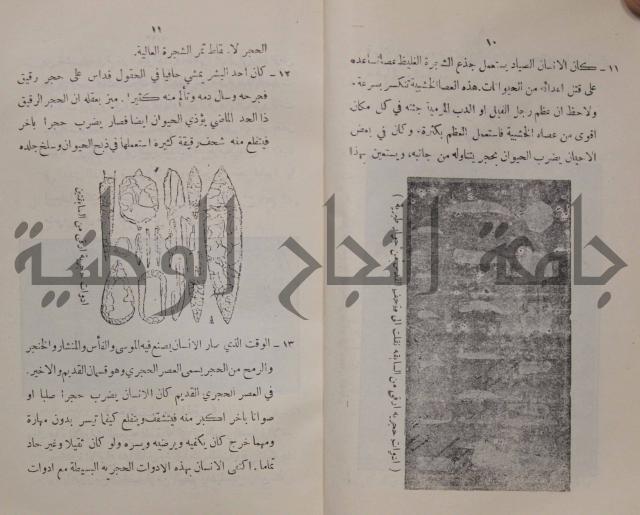 ١٠
١١ ـ كان الانسان الصياد يستعمل جذع الشجرة الغليظ عصا تساعده
على قتل اعدائه من الحيوانات. هذه العصا الخشبية تنكسر بسرعة.
ولاحظ ان عظم رجل الفيل او الدب المرمية جثته في كل مكان
اقوى من عصاه الخشبية فاستعمل العظم بكثرة. وكان في بعض
الاحيان يضرب الحيوان بحجر يتناوله من جانبه، ويستعين بهذا
( ادوات حجرية ارقى من السابقة نقلت الى
١١
الحجر لا. قاط ثمر الشجرة العالية.
١٢ ـ كان احد البشر يمشي حافيا في الحقول فداس على حجر رقيق
فجرحه وسال دمه وتألم منه كثيرا. ميز بعقله ان الحجر الرقيق
ذا الحد الماضي يؤذي الحيوان ايضا فصار يضرب حجرا بآخر
فيتقلع منه شحف رقيقة كثيرة استعملها في ذبح الحيوان وسلخ جلده
ادوات حجرية ارقى من السابقتين
١٣ ـ الوقت الذي صار الانسان يصنع فيه الموسى والفأس والمنشار والخنجر
والرمح من الحجر يسمى العصر الحجري وهو قسمان القديم والاخير.
في العصر الحجري القديم كان الانسان يضرب حجرا صلبا او
صوانا بآخر اكبر منه فيتشقف ويتقلع كيفما تيسر بدون مهارة
ومهما خرج كان يكفيه ويرضيه ويسره ولو كان ثقيلا وغير حاد
تماما. اكتفى الانسان بهذه الادوات الحجرية البسيطة مع ادوات
جامعة النجاح الوطنية